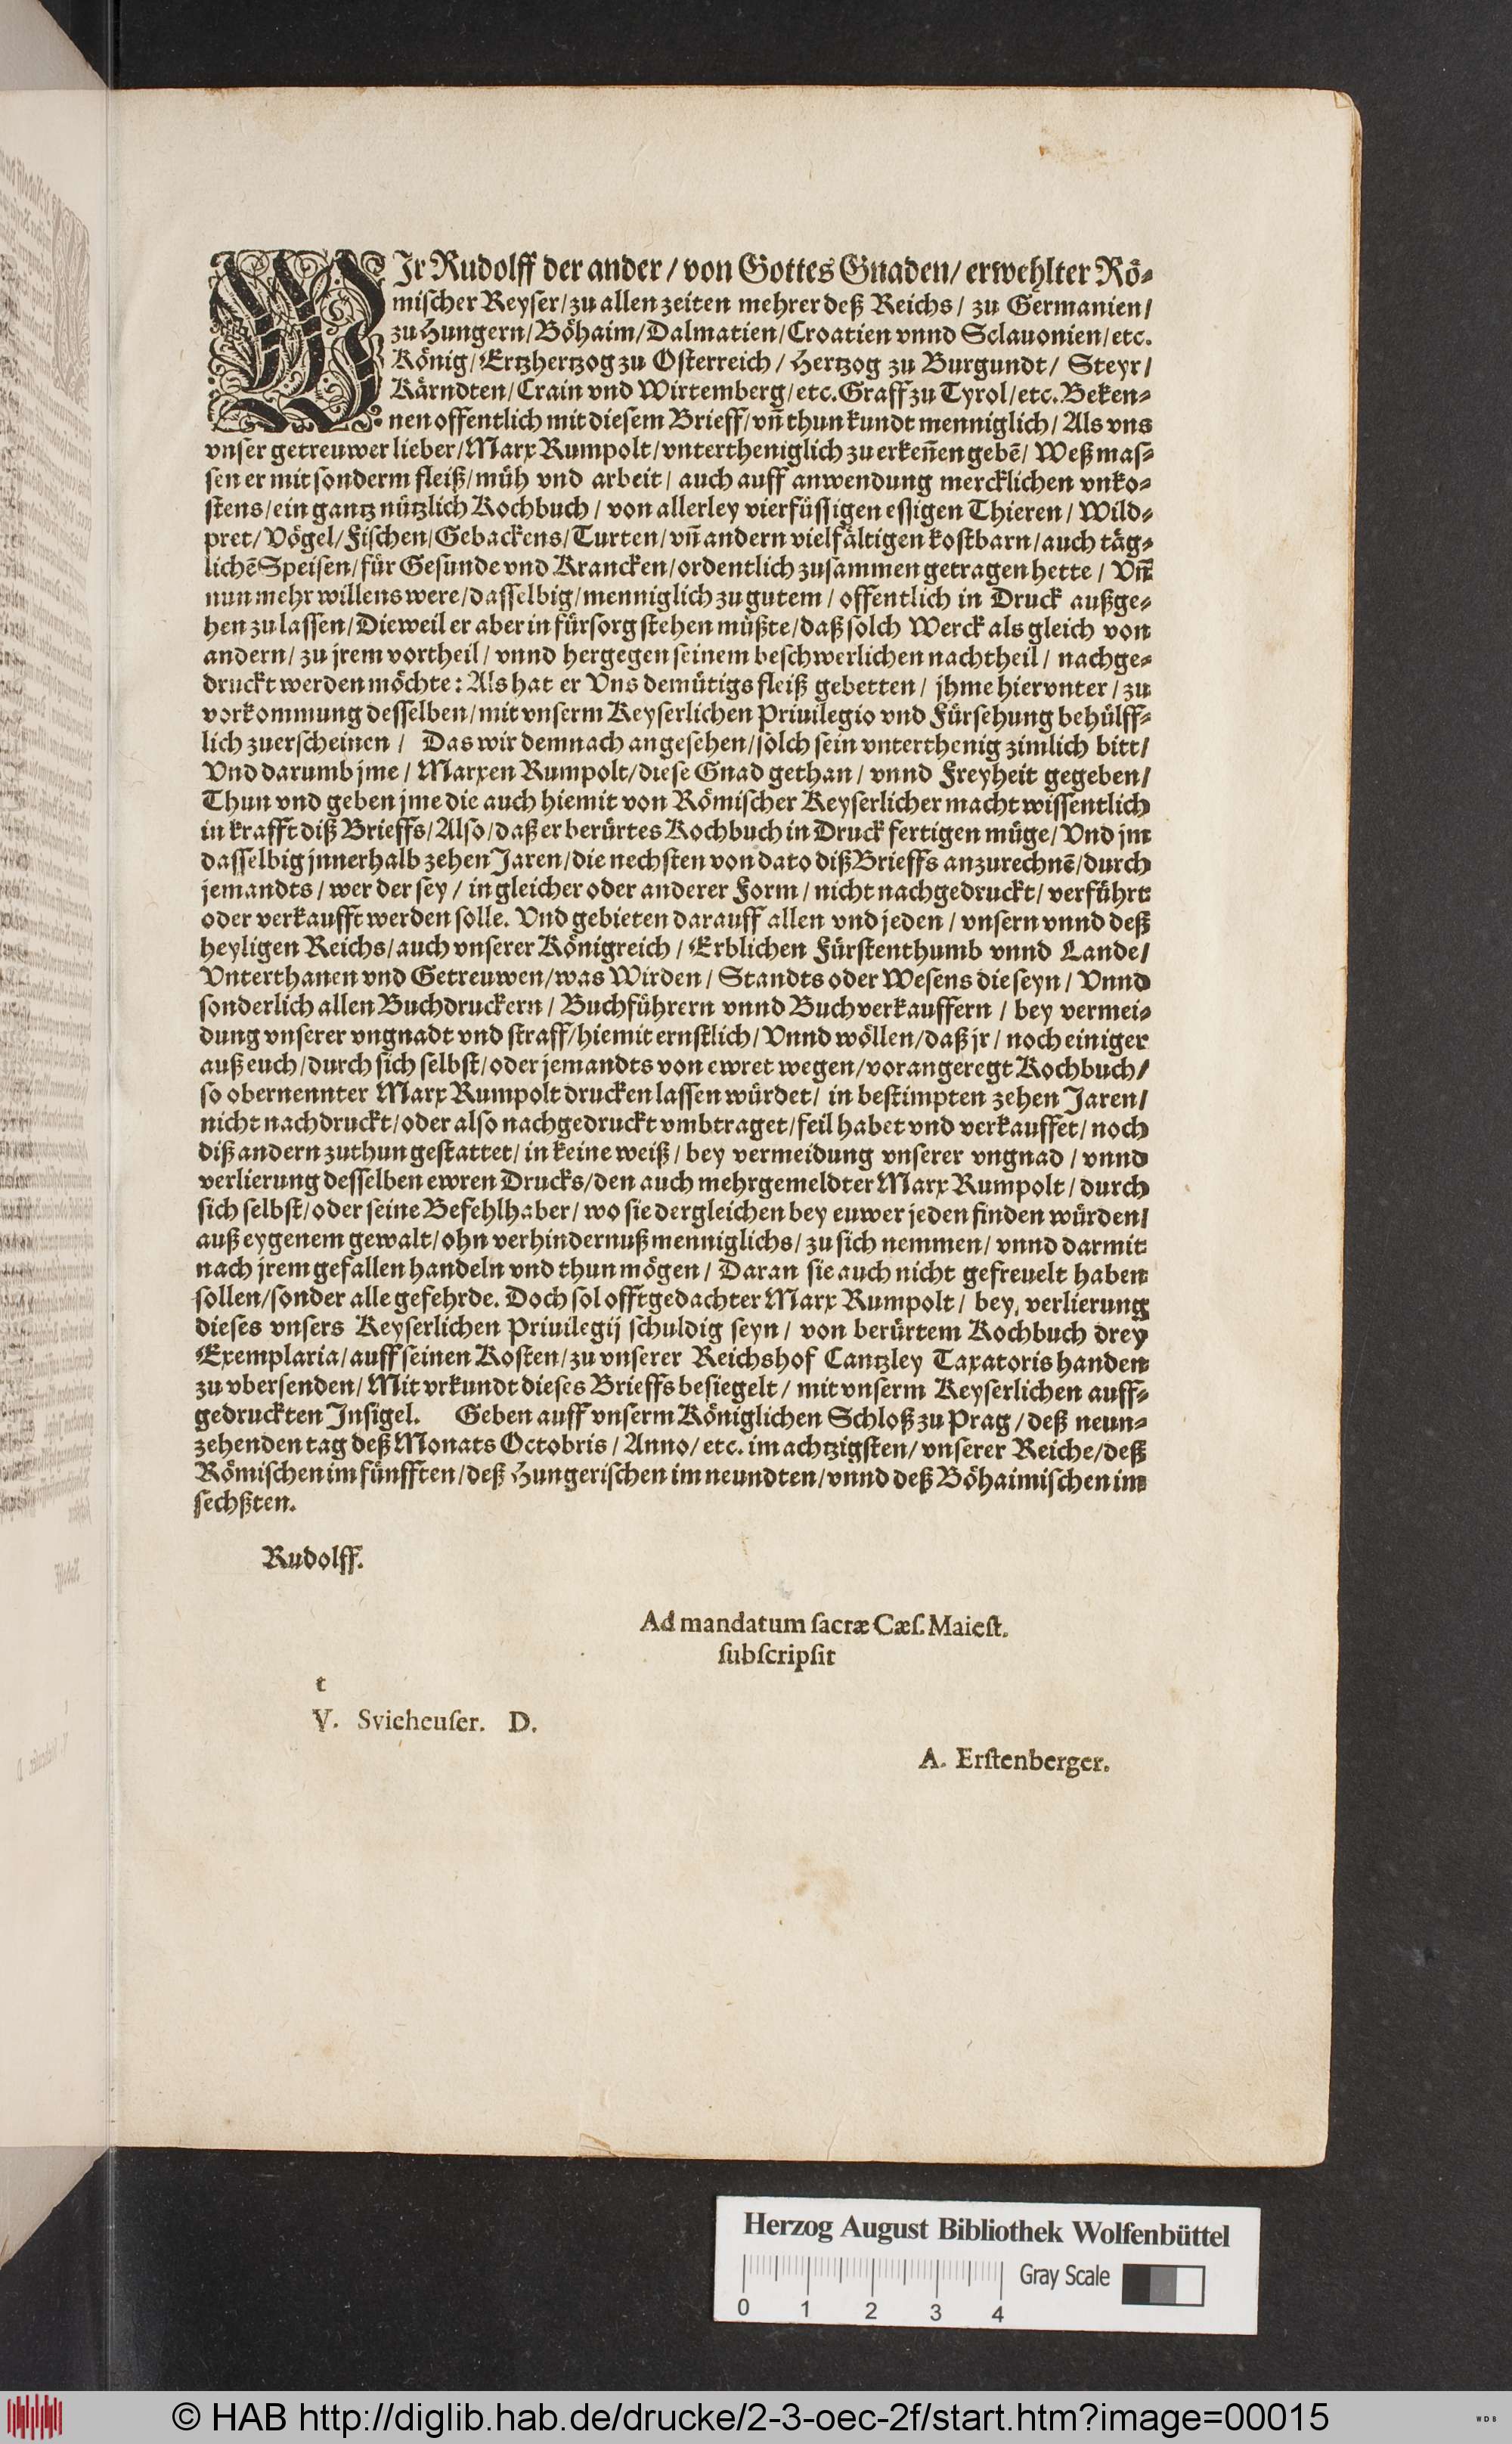 WIr Rudolff der ander / von Gottes Gnaden / erwehlter Rö-
mischer Keyser / zu allen zeiten mehrer deß Reichs / zu Germanien /
zu Hungern / Böhaim / Dalmatien / Croatien vnnd Sclauonien / etc.
König / Ertzhertzog zu Osterreich / Hertzog zu Burgundt / Steyr /
Kärndten / Crain vnd Wirtemberg / etc. Graff zu Tyrol / etc. Beken-
nen offentlich mit diesem Brieff / vñ thun kundt menniglich / Als vns
vnser getreuwer lieber / Marx Rumpolt / vntertheniglich zu erkeñen gebē / Weß mas-
sen er mit sonderm fleiß / müh vnd arbeit / auch auff anwendung mercklichen vnko-
stens / ein gantz nützlich Kochbuch / von allerley vierfüssigen essigen Thieren / Wild-
pret / Vögel / Fischen / Gebackens / Turten / vñ andern vielfältigen kostbarn / auch täg-
lichē Speisen / für Gesunde vnd Krancken / ordentlich zusammen getragen hette / Vñ
nun mehr willens were / dasselbig / menniglich zu gutem / offentlich in Druck außge-
hen zu lassen / Dieweil er aber in fürsorg stehen müßte / daß solch Werck als gleich von
andern / zu jrem vortheil / vnnd hergegen seinem beschwerlichen nachtheil / nachge-
druckt werden möchte : Als hat er Vns demütigs fleiß gebetten / jhme hiervnter / zu
vorkommung desselben / mit vnserm Keyserlichen Priuilegio vnd Fürsehung behülff-
lich zuerscheinen / Das wir demnach angesehen / solch sein vnterthenig zimlich bitt /
Vnd darumb jme / Marxen Rumpolt / diese Gnad gethan / vnnd Freyheit gegeben /
Thun vnd geben jme die auch hiemit von Römischer Keyserlicher macht wissentlich
in krafft diß Brieffs / Also / daß er berürtes Kochbuch in Druck fertigen müge / Vnd jm
dasselbig jnnerhalb zehen Jaren / die nechsten von dato diß Brieffs anzurechnē / durch
jemandts / wer der sey / in gleicher oder anderer Form / nicht nachgedruckt / verführt
oder verkaufft werden solle. Vnd gebieten darauff allen vnd jeden / vnsern vnnd deß
heyligen Reichs / auch vnserer Königreich / Erblichen Fürstenthumb vnnd Lande /
Vnterthanen vnd Getreuwen / was Wirden / Standts oder Wesens die seyn / Vnnd
sonderlich allen Buchdruckern / Buchführern vnnd Buchverkauffern / bey vermei-
dung vnserer vngnadt vnd straff / hiemit ernstlich / Vnnd wöllen / daß jr / noch einiger
auß euch / durch sich selbst / oder jemandts von ewret wegen / vorangeregt Kochbuch /
so obernennter Marx Rumpolt drucken lassen würdet / in bestimpten zehen Jaren /
nicht nachdruckt / oder also nachgedruckt vmbtraget / feil habet vnd verkauffet / noch
diß andern zuthun gestattet / in keine weiß / bey vermeidung vnserer vngnad / vnnd
verlierung desselben ewren Drucks / den auch mehrgemeldter Marx Rumpolt / durch
sich selbst / oder seine Befehlhaber / wo sie dergleichen bey euwer jeden finden würden /
auß eygenem gewalt / ohn verhindernuß menniglichs / zu sich nemmen / vnnd darmit
nach jrem gefallen handeln vnd thun mögen / Daran sie auch nicht gefreuelt haben
sollen / sonder alle gefehrde. Doch sol offtgedachter Marx Rumpolt / bey verlierung
dieses vnsers Keyserlichen Priuilegij schuldig seyn / von berürtem Kochbuch drey
Exemplaria / auff seinen Kosten / zu vnserer Reichshof Cantzley Taxatoris handen
zu vbersenden / Mit vrkundt dieses Brieffs besiegelt / mit vnserm Keyserlichen auff-
gedruckten Insigel. Geben auff vnserm Königlichen Schloß zu Prag / deß neun-
zehenden tag deß Monats Octobris / Anno / etc. im achtzigsten / vnserer Reiche / deß
Römischen im fünfften / deß Hungerischen im neundten / vnnd deß Böhaimischen im
sechßten.
Rudolff.
Ad mandatum sacræ Cæs. Maiest.
subscripsit
t
V. Svieheuser. D.
A. Erstenberger.
Herzog August Bibliothek Wolfenbüttel
Gray Scale
0 1 2 3 4
© HAB http://diglib.hab.de/drucke/2-3-oec-2f/start.htm?image=00015
WDB